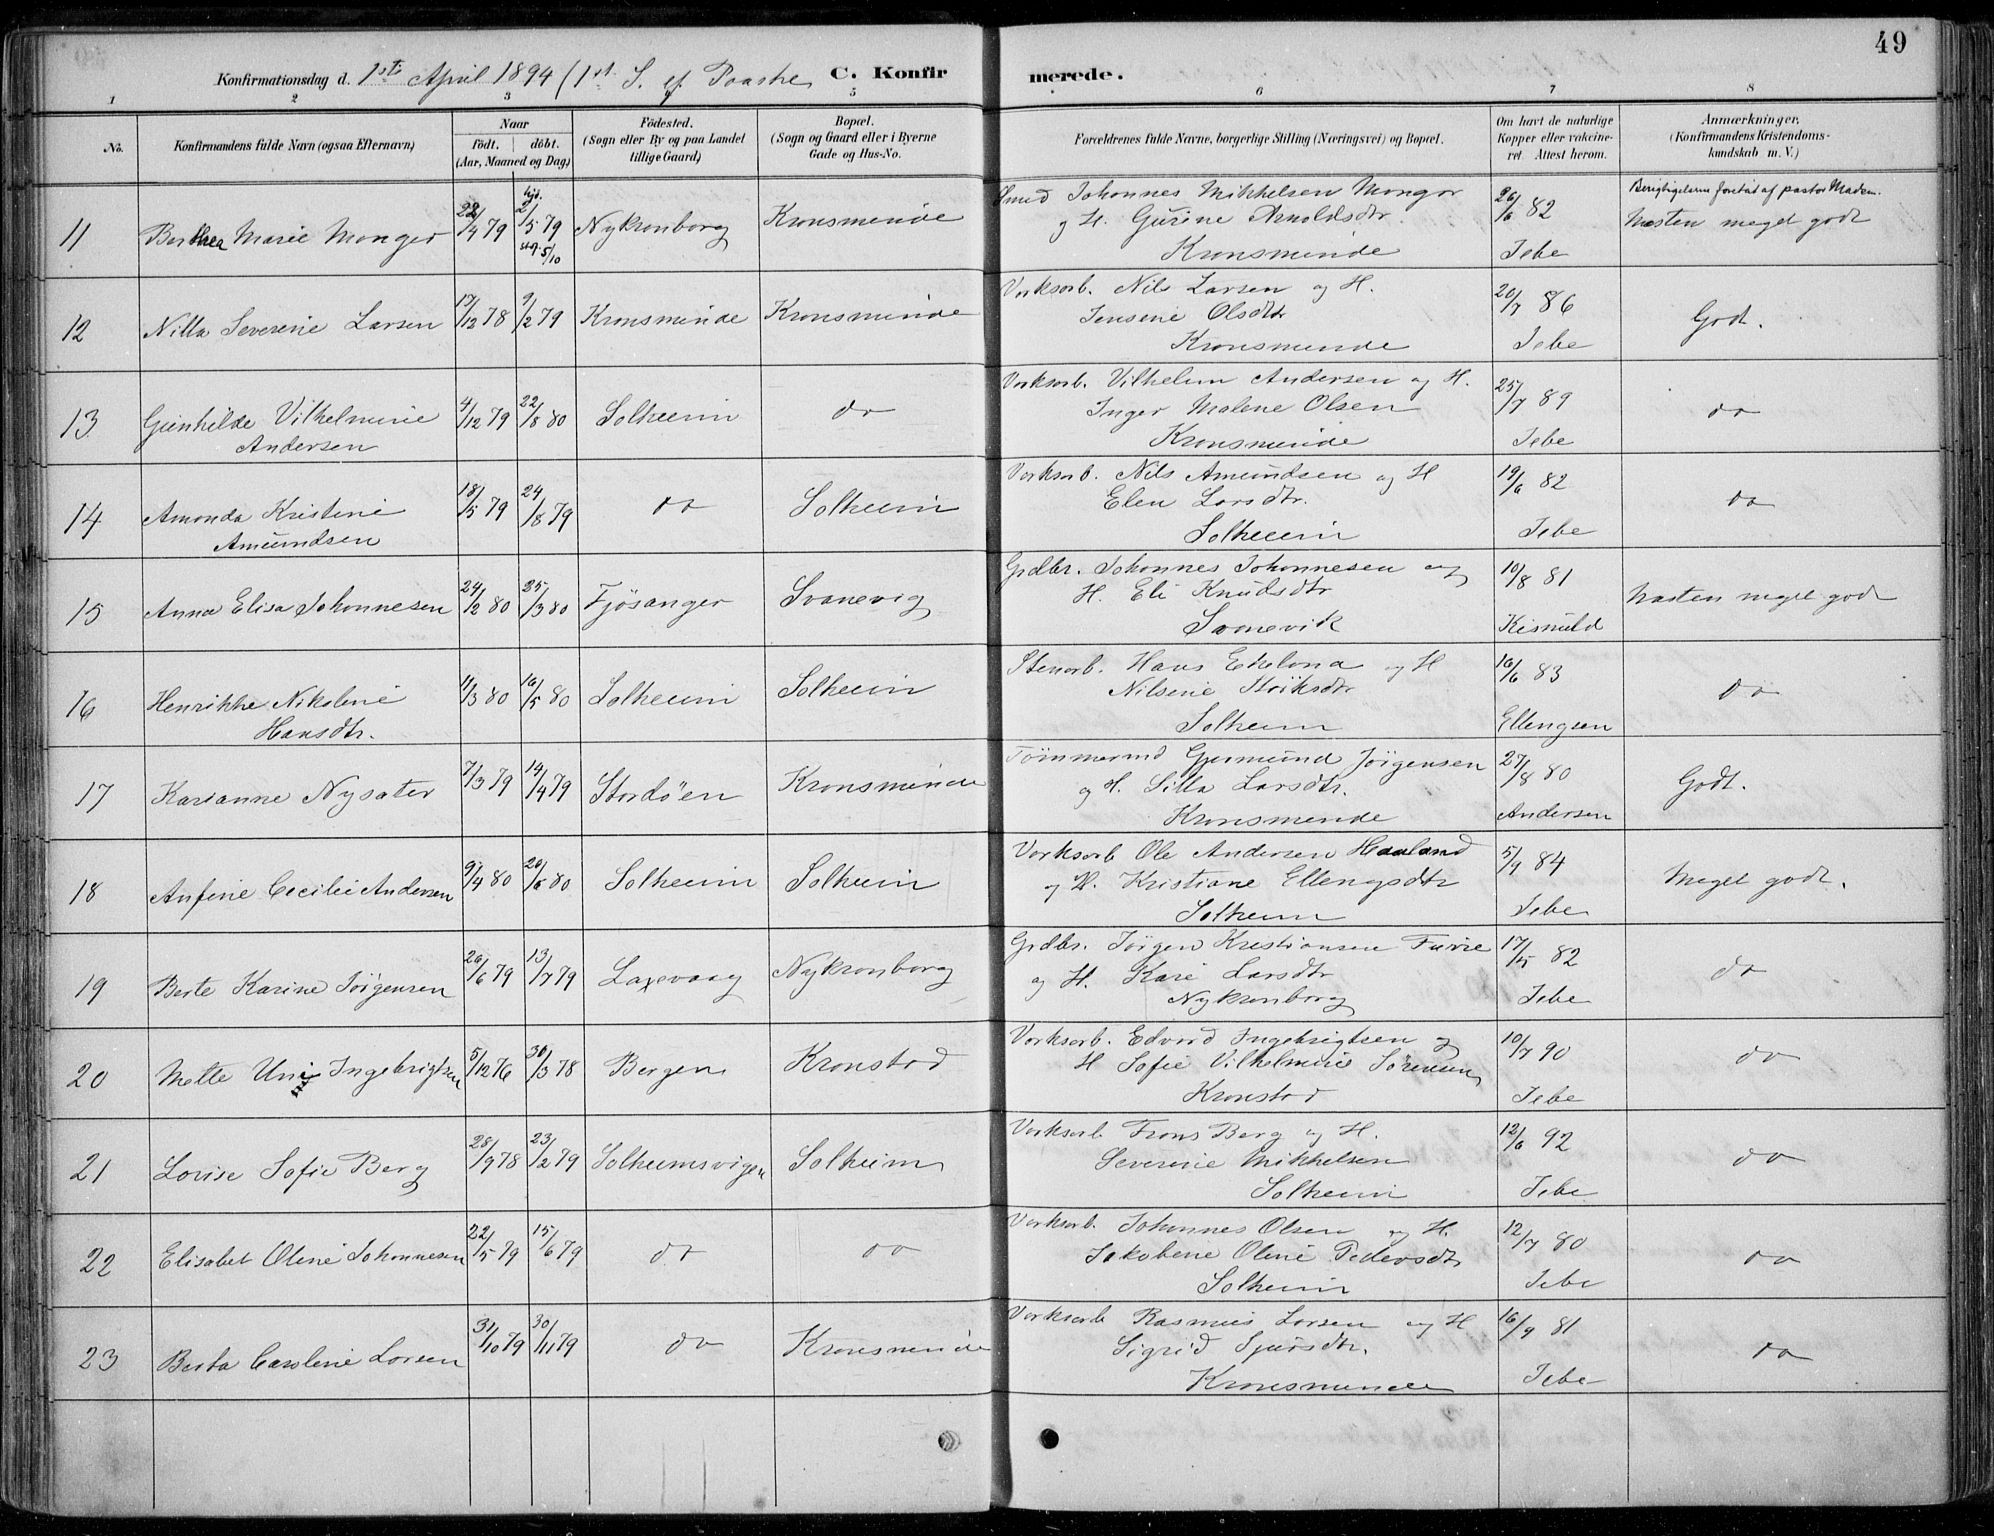 49
Konfirmationsdag d. 1ste April 1894 (1st. S. ef. Paaske) C. Konfirmerede.
1 2 3 4 5 6 7 8
No. Konfirmandens fulde Navn (ogsaa Efternavn) Naar födt. döbt. (Aar, Maaned og Dag) Födested. (Sogn eller By og paa Landet tillige Gaard) Bopæl. (Sogn og Gaard eller i Byerne Gade og Hus-No. Forældrenes fulde Navne, borgerlige Stilling (Næringsvei) og Bopæl. Om havt de naturlige Kopper eller vakcineret. Attest herom. Anmærkninger. (Konfirmandens Kristendomskundskab m. V.)
11 Berthea Marie Monger 22/4 79 hjd. 2/5 79 st. 9. 5/10 Nykronborg Kronsminde Smed Johannes Mikkelsen Monger 26/6 82 Berigtigelsen foretad af pastor Madsen.
og H. Gurine Arnoldsdtr. Næsten meget godt
Kronsminde Jebe
12 Nilla Severine Larsen 17/12 78 9/2 79 Kronsminde Kronsminde Værksarb. Nils Larsen og H. 20/7 86 Godt.
Jensine Olsdtr
Kronsminde Jebe
13 Gunhilde Vilhelmine Andersen 4/12 79 22/8 80 Solheim do Værksarb. Vilhelm Andersen og H. 25/7 89 do
Inger Malene Olsen
Kronsminde Jebe
14 Amanda Kristine Amundsen 18/5 79 24/8 79 do Solheim Værksarb. Nils Amundsen og H 19/6 82 do
Elen Larsdtr.
Solheim Jebe
15 Anna Elisa Johannesen 24/2 80 25/3 80 Fjösanger Svanevig Grdbr. Johannes Johannesen og 10/8 81 Næsten meget godt
H. Eli Knudsdtr
Svanevik Kismuld
16 Henrikke Nikoline Hansdtr. 11/3 80 16/5 80 Solheim Solheim Stenarb. Hans Ekelona og H 16/6 83 do
Nilsine
Solheim Ellengsen
17 Karianne Nysater 7/3 79 14/4 79 Stordöen Kronsminde Tømmermd Gjermund Jørgensen 27/8 80 Godt.
og H. Silla Larsdtr.
Kronsminde Andersen
18 Anfine Cecilie Andersen 9/4 80 20/6 80 Solheim Solheim Værksarb Ole Andersen Haaland 5/9 84 Meget godt.
og H. Kristiane Ellengsdtr
Solheim Jebe
19 Berte Karine Jörgensen 26/6 79 13/7 79 Laxevaag Nykronborg Grdbr. Jörgen Kristiansen Furre 17/5 82 do
og H. Kari Larsdtr
Nykronborg Jebe
20 Mette Uni Ingebrigtsen 5/12 76 30/3 78 Bergen Kronstad Værksarb. Edvard Ingebrigtsen og 10/7 90 do
H Sofie Vilhelmine Sörensen
Kronstad Jebe
21 Lovise Sofie Berg 28/9 78 23/2 79 Solheimsvigen Solheim Værksarb Frans Berg og H. 12/6 92 do
Severine Mikkelsen
Solheim Jebe
22 Elisabet Oline Johannesen 22/5 79 15/6 79 do do Værksarb. Johannes Olsen og H. 12/7 80 do
Jakobine Oline Pedersdtr
Solheim Jebe
23 Berta Caroline Larsen 31/10 79 30/11 79 do Kronsminde Værksarb Rasmus Larsen og H 16/9 81 do
Sigrid Sjursdtr.
Kronsminde Jebe